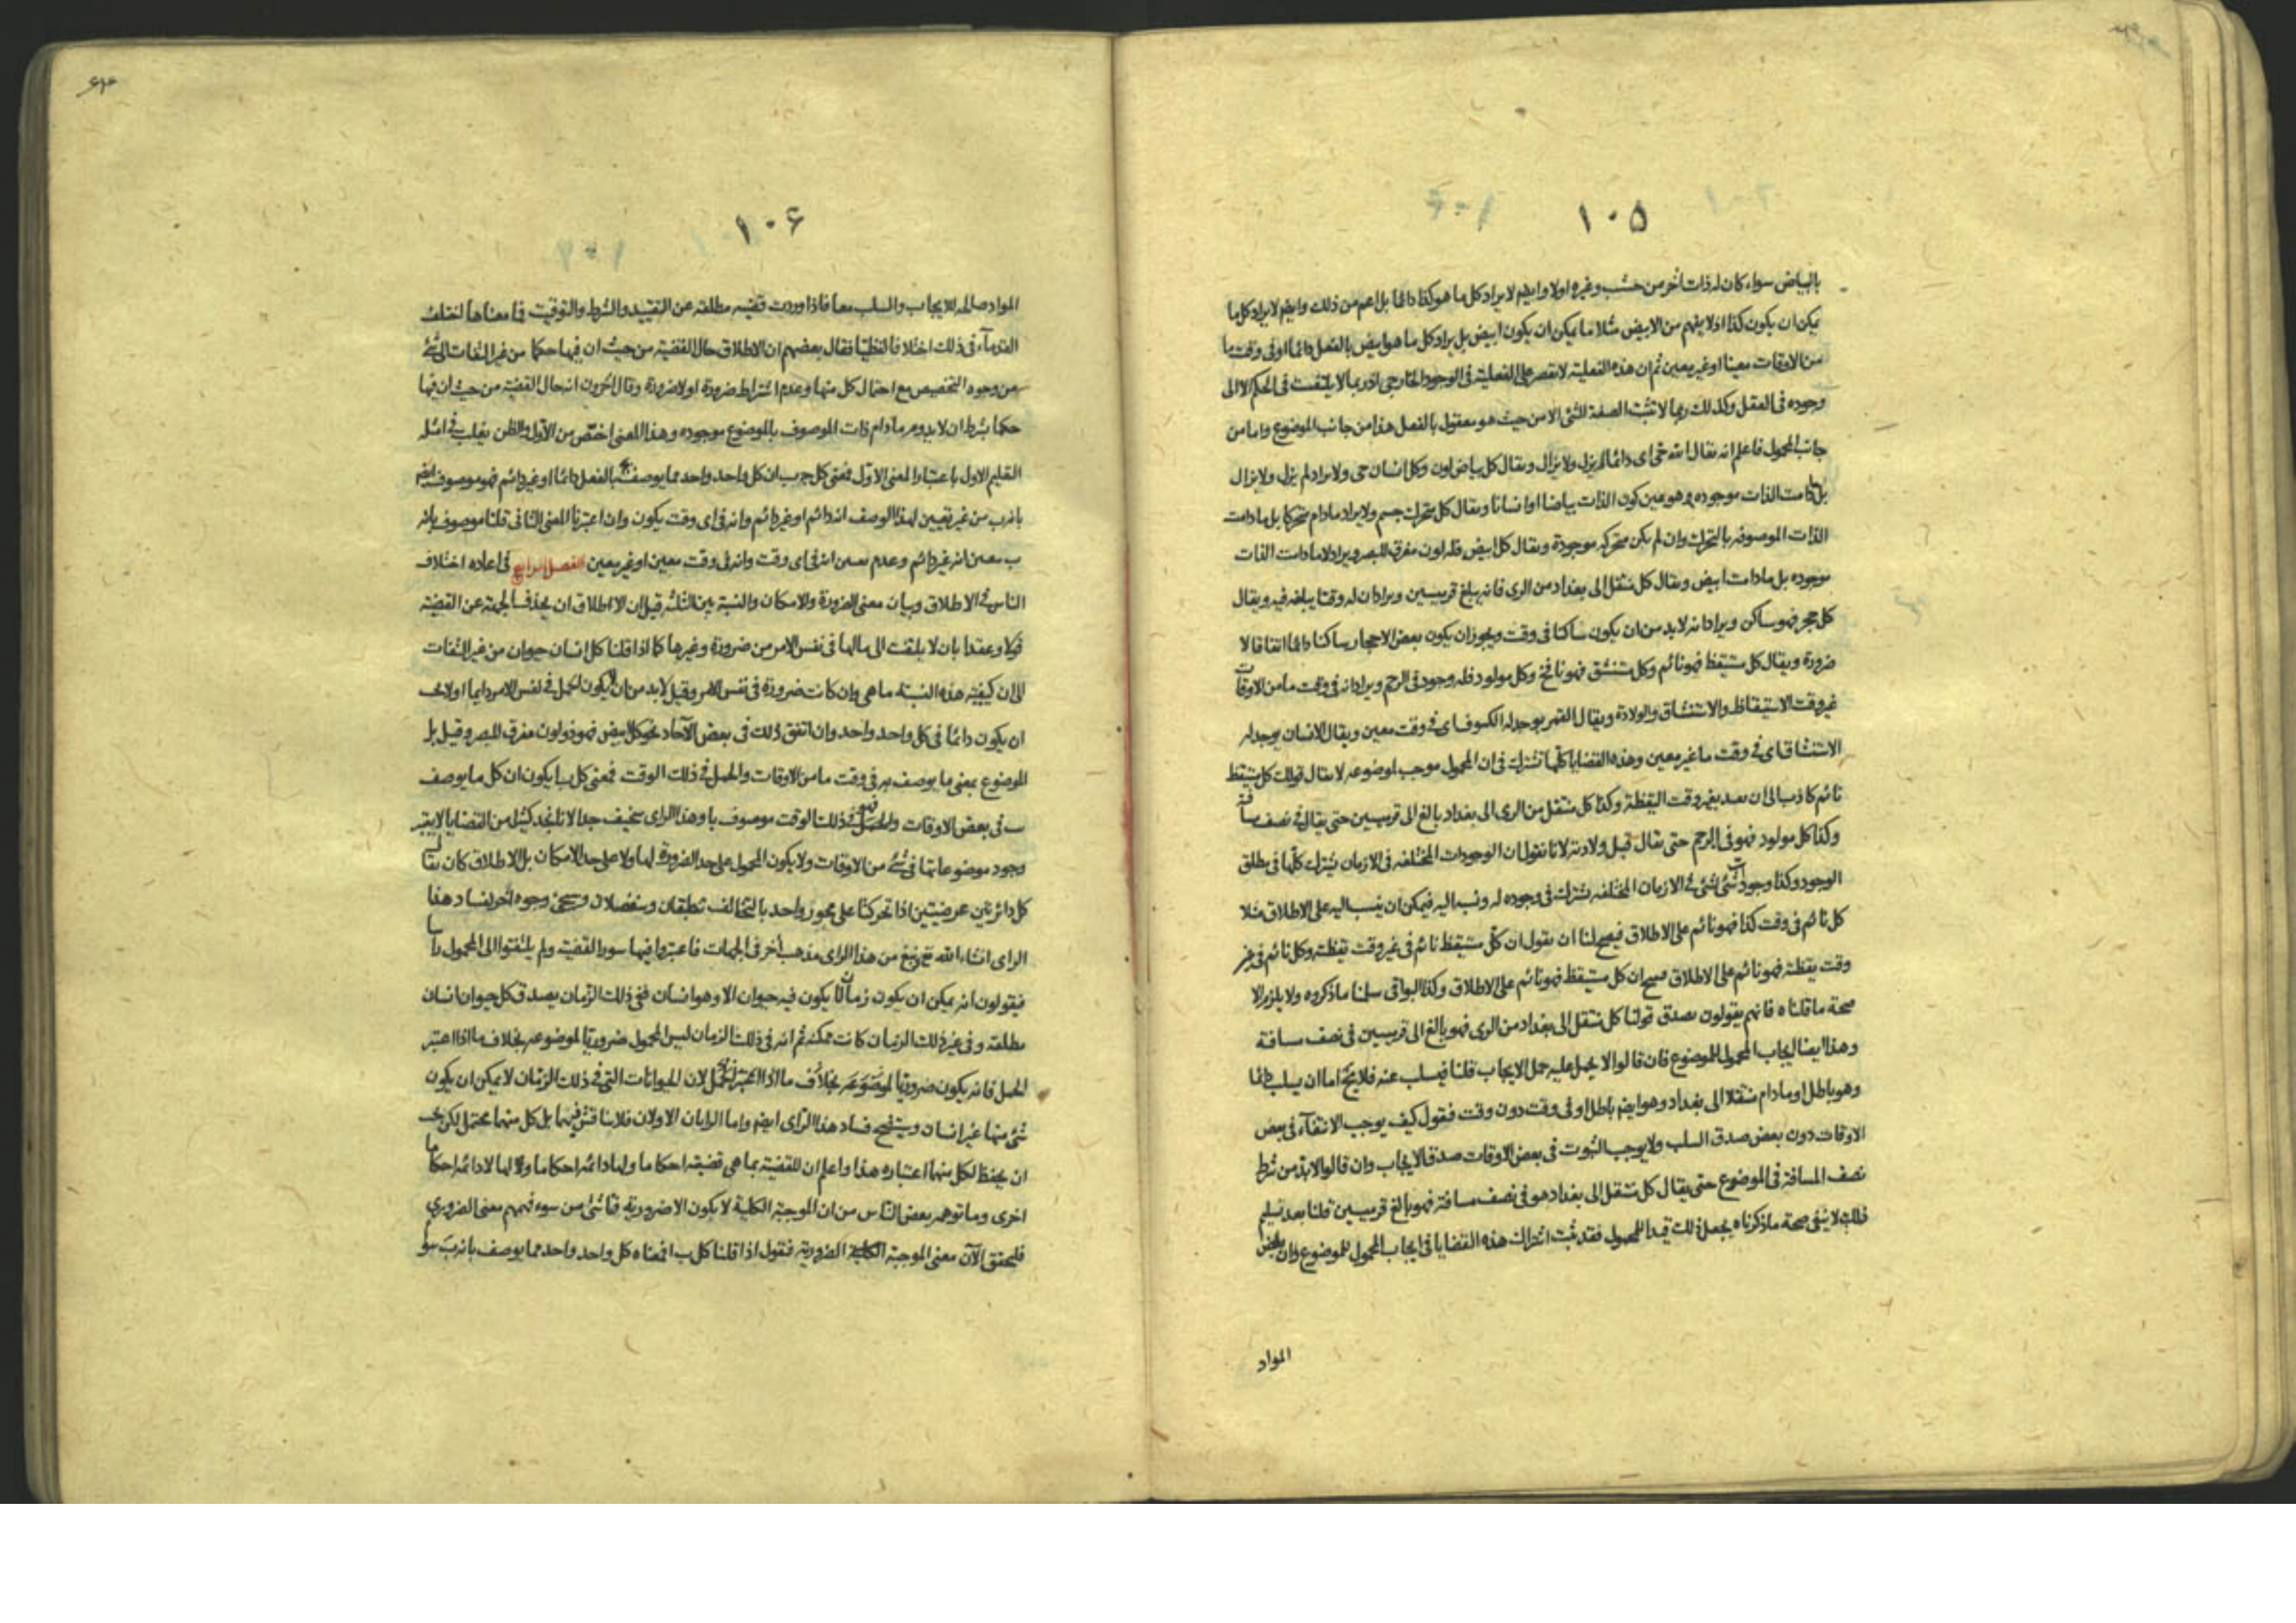 ١٠٥
بالبياض سواء كان له ذات اخر من خشب وغيره اولا وايضم لا يراد كل ما هو كذا دائما بل اعم من ذلك وايضم لا يراد كل ما
يمكن ان يكون كذا اذ لا يفهم من الابيض مثلا ما يمكن ان يكون ابيض بل يراد كل ما هو ابيض بالفعل دائما او فى وقت ما
من الاوقات معينا او غير معين ثم ان هذه الفعلية لا تقصر على الفعلية فى الوجود الخارجى اذ ربما لا يلتفت فى الحكم الا الى
وجوده فى العقل وكذلك ربما لا تثبت الصفة للشئ الا من حيث هو معقول بالفعل هذا من جانب الموضوع واما من
جانب المحمول فاعلم انه يقال الله حى اى دائما لم يزل ولا يزال ويقال كل بياض لون وكل انسان حى ولا يراد لم يزل ولا يزال
بل ما دامت الذات موجوده وهو عين كون الذات بياضا او انسانا ويقال كل متحرك جسم ولا يراد ما دام متحركا بل ما دامت
الذات الموصوفه بالتحرك وان لم يكن متحركه موجودة ويقال كل ابيض فله لون مفرق للبصر ويراد لا ما دامت الذات
موجوده بل ما دامت ابيض ويقال كل منتقل الى بغداد من الرى فانه يبلغ قرميسين ويراد ان له وقتا يبلغه فيه ويقال
كل حجر فهو ساكن ويراد انه لا بد من ان يكون ساكنا فى وقت ويجوز ان يكون بعض الاحجار ساكنا دائما اتفاقا لا
ضرورة ويقال كل مستيقظ فهو نائم وكل متنشق فهو نافخ وكل مولود فله وجود فى الرحم ويراد انه فى وقت ما من الاوقات
غير وقت الاستيقاظ والاستنشاق والولادة ويقال القمر يوجد له الكسوف اى فى وقت معين ويقال الانسان يوجد له
الاستنشاق اى فى وقت ما غير معين وهذه القضايا كلها تشترك فى ان المحمول موجب لموضوعه لا يقال قولك كل مستيقظ
نائم كاذب الى ان يقيد بغير وقت اليقظة وكذا كل منتقل من الرى الى بغداد بالغ الى قرميسين حتى يقال فى نصف مسافة
وكذا كل مولود فهو فى الرحم حتى يقال قبل ولادته لانا نقول ان الوجودات المختلفه فى الازمان تشترك كلها فى مطلق
الوجود وكذا وجودات شئ لشئ فى الازمان المختلفه تشترك فى وجوده له ونسبا اليه فيمكن ان ينسب اليه على الاطلاق مثلا
كل نائم فى وقت كذا فهو نائم على الاطلاق فيصح لنا ان نقول ان كل مستيقظ نائم فى غير وقت يقظته وكل نائم فى غير
وقت يقظته فهو نائم على الاطلاق صح ان كل مستيقظ فهو نائم على الاطلاق وكذا البواقى سلمنا ما ذكروه ولا يلزم الا
صحة ما قلناه فانهم يقولون بصدق قولنا كل منتقل الى بغداد من الرى فهو بالغ الى قرميسين فى نصف مسافة
وهذا ايضا ايجاب المحمول للموضوع فان قالوا لا يحمل عليه حمل الايجاب قلنا فيسلب عنه فلا يخ اما ان يسلب دائما
وهو باطل او ما دام منتقلا الى بغداد وهو ايضم باطل او فى وقت دون وقت فنقول كيف يوجب الانتفاء فى بعض
الاوقات دون بعض صدق السلب ولا يوجب الثبوت فى بعض الاوقات صدق الايجاب وان قالوا لا بد من شرط
نصف المسافة فى الموضوع حتى يقال كل منتقل الى بغداد هو فى نصف مسافة فهو بالغ قرميسين قلنا بعد تسليم
ذلك لا ينفى صحة ما ذكرناه بجعل ذلك قيدا للمحمول فقد ثبت اشتراك هذه القضايا فى ايجاب المحمول للموضوع وان بعض
المواد
١٠۶
المواد صالحه للايجاب والسلب معا فاذا وردت قضيه مطلقه عن التقييد والشرط والتوقيت فما معناها اختلف
القدماء فى ذلك اختلافا لفظيا فقال بعضهم ان الاطلاق حال القضية من حيث ان فيها حكما من غير التفات الى شئ
من وجوه التخصيص مع احتمال كل منها وعدم اشتراط ضرورة او لا ضرورة وقال اخرون انه حال القضية من حيث ان فيها
حكما بشرط ان لا يدوم ما دام ذات الموصوف بالموضوع موجوده وهذا المعنى اخص من الاول والظن يغلب فى امثله
التعليم الاول باعتبار المعنى الاول فمعنى كل ج ب ان كل واحد واحد مما يوصف بج بالفعل دائما او غير دائم فهو موصوف ايضم
بانه ب من غير تعيين لهذا الوصف انه دائم او غير دائم وانه فى اى وقت يكون وان اعتبرنا المعنى الثانى قلنا موصوف بانه
ب معين انه غير دائم وعدم تعين انه فى اى وقت وانه فى وقت معين او غير معين الفصل الرابع فى اعاده اختلاف
الناس فى الاطلاق وبيان معنى الضرورة والامكان والنسبة بين الثلثه قيل ان الاطلاق ان يحذف الجهة عن القضية
قولا وعقدا بان لا يلتفت الى ما لها فى نفس الامر من ضرورة وغيرها كما اذا قلنا كل انسان حيوان من غير التفات
الى ان كيفية هذه النسبه ما هى وان كانت ضرورة فى نفس الامر وقيل لا بد من ان لا يكون الحمل فى نفس الامر دايما او لا يجب
ان يكون دائما فى كل واحد واحد وان اتفق ذلك فى بعض الآحاد نحو كل ابيض فهو ذو لون مفرق للبصر وقيل بل
الموضوع بمعنى ما يوصف به فى وقت ما من الاوقات والحمل فى ذلك الوقت فمعنى كل ب ا يكون ان كل ما يوصف
ب فى بعض الاوقات فهو فى ذلك الوقت موصوف با وهذا الراى سخيف جدا لانا نجد كثيرا من القضايا لا يعتبر
وجود موضوعاتها فى شئ من الاوقات ولا يكون المحمول على حد الضرورة لها ولا على حد الامكان بل الاطلاق كان يقال
كل دائرتين عرضيتين اذا تحركتا على محور واحد بالتخالف تنطبقان وتنفصلان وسيجئ وجوه اخر لفساد هذا
الراى انشاء الله تع ونبغ من هذا الراى مذهب اخر فى الجهات فاعتبروا فيها سور القضية ولم يلتفتوا الى المحمول راسا
فيقولون انه يمكن ان يكون زمان لا يكون فيه حيوان الا وهو انسان ففى ذلك الزمان يصدق كل حيوان انسان
مطلقه وفى غير ذلك الزمان كانت ممكنه ثم انه فى ذلك الزمان ليس المحمول ضروريا لموضوعه بخلاف ما اذا اعتبر
الحمل فانه يكون ضروريا لموضوعه بخلاف ما اذا اعتبر الحمل لان الحيوانات التى فى ذلك الزمان لا يمكن ان يكون
شئ منها غير انسان وسيتضح فساد هذا الراى ايضم واما الرايان الاولان فلا نناقش فيهما بل كل منهما محتمل لكن يجب
ان يحفظ لكل منهما اعتباره هذا واعلم ان للقضية بما هى قضية احكاما ولها دائمه احكاما ولها لا دائمه احكاما
اخرى وما توهمه بعض الناس من ان الموجبة الكلية لا يكون الا ضرورية فناشئ من سوء فهمهم معنى الضرورى
فلنحقق الآن معنى الموجبة الكلية الضرورية فنقول اذا قلنا كل ب ا فمعناه كل واحد واحد مما يوصف بانه ب سوا